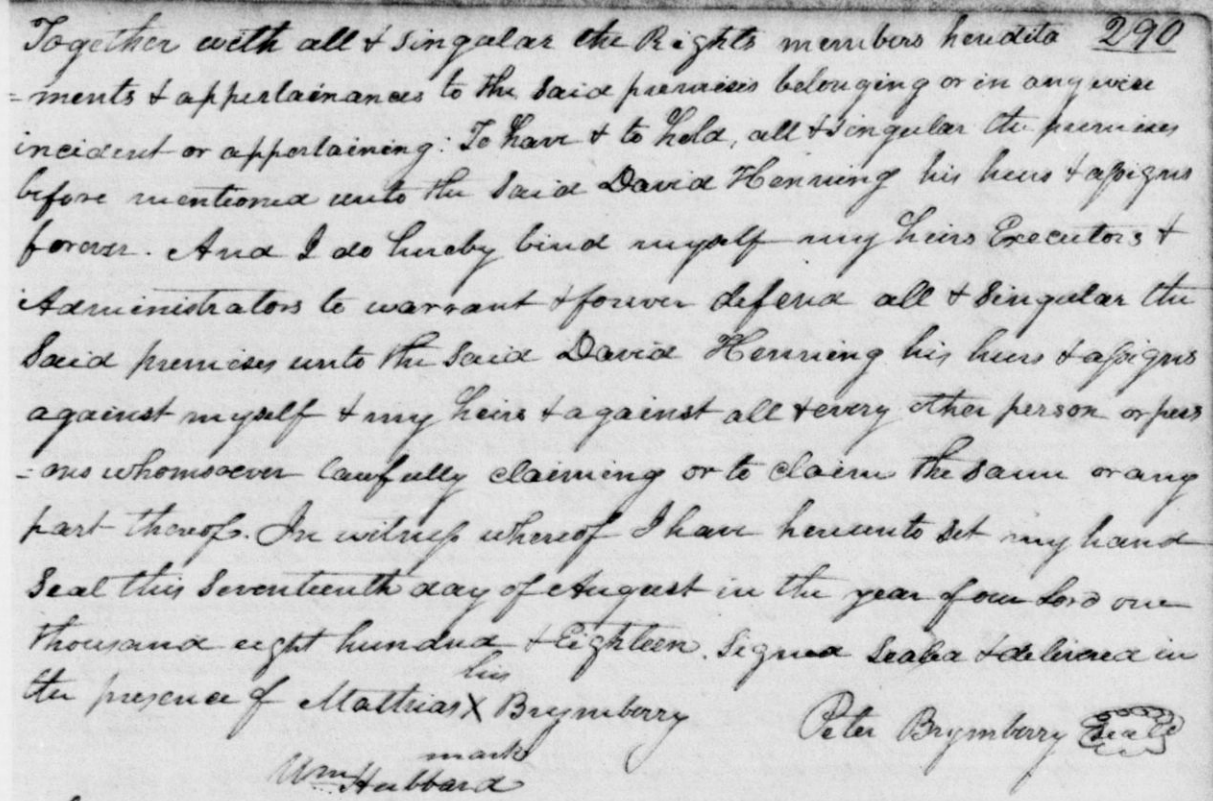 Together with all & Singular the Rights members heredita 290
= ments & appertainances to the Said premises belonging or in any wise
incident or appertaining: To have & to hold, all & Singular the premises
before mentioned unto the Said David Henning his heirs & assigns
forever. And I do hereby bind myself my heirs Executors &
Administrators to warrant & forever defend all & Singular the
Said premises unto the Said David Henning his heirs & assigns
against myself & my heirs & against all & every other person or pers
= ons whomsoever lawfully claiming or to claim the Same or any
part thereof. In witness whereof I have hereunto Set my hand
Seal this Seventeenth day of August in the year of our Lord one
thousand eight hundred & Eighteen. Signed Sealed & delivered in
the presence of Mathias his X mark Brymberry
Peter Brymberry Seal
Wm Hubbard